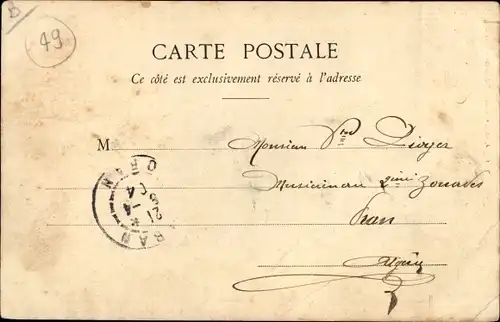 49
CARTE POSTALE
Ce côté est exclusivement réservé à l'adresse
M
Monsieur
Musicien au 2ème Zouaves
Oran
Algérie
ORAN
ORAN